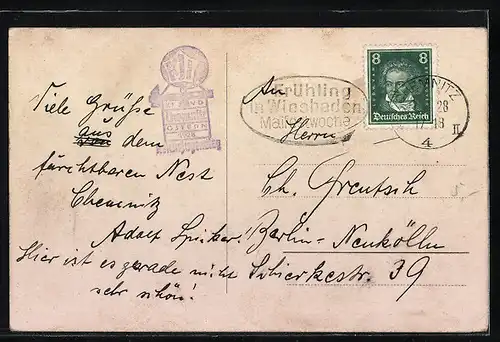 Viele Grüße
aus dem
furchtbaren Nest
Chemnitz
Adolf
Hier ist es gerade nicht
sehr schön!
OSTERN
Frühling
in Wiesbaden
Maifestwoche
8 8
Deutsches Reich
CHEMNITZ
28
17-18
II
4
An
Herrn
Ch. Greutsch
Berlin-Neukölln
Schierkestr. 39